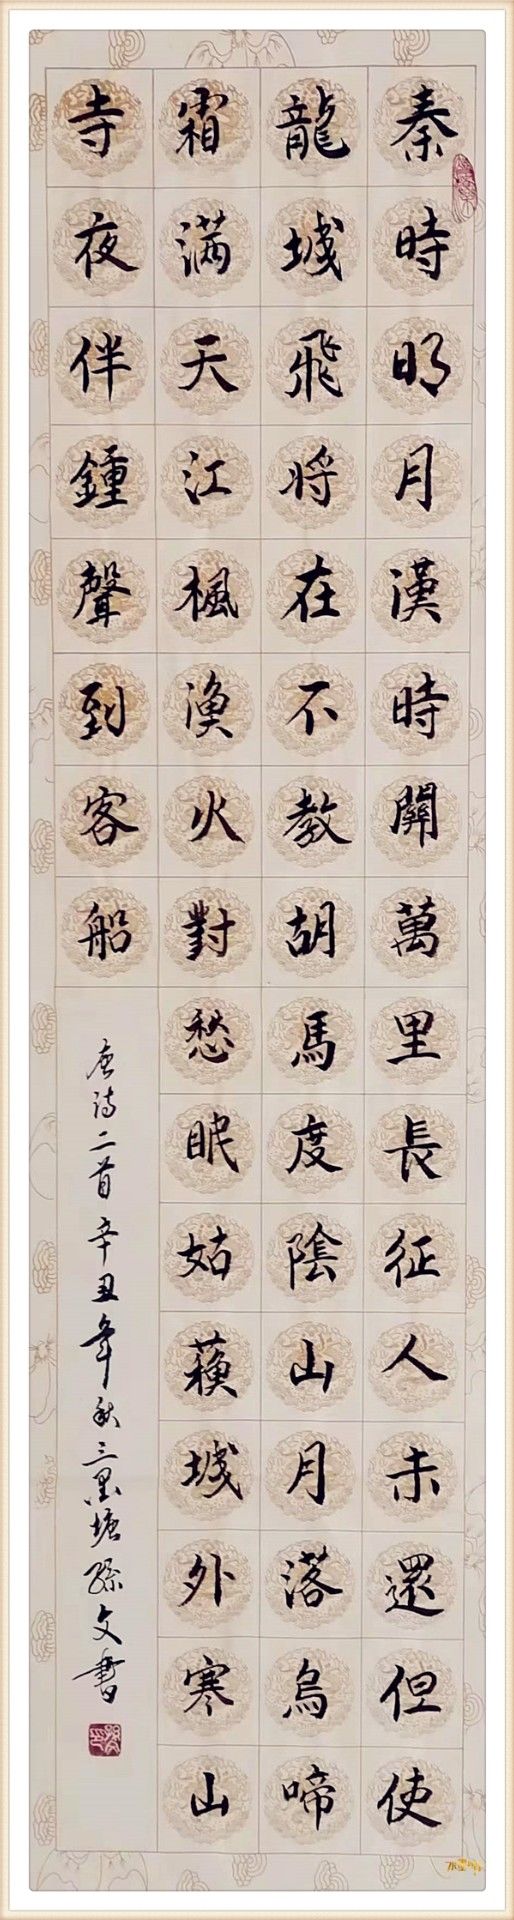 秦時明月漢時關萬里長征人未還但使
龍城飛将在不教胡馬度陰山月落烏啼
霜滿天江楓漁火對愁眠姑蘓城外寒山
寺夜伴鍾聲到客船
唐詩二首辛丑年秋三塘孫文書